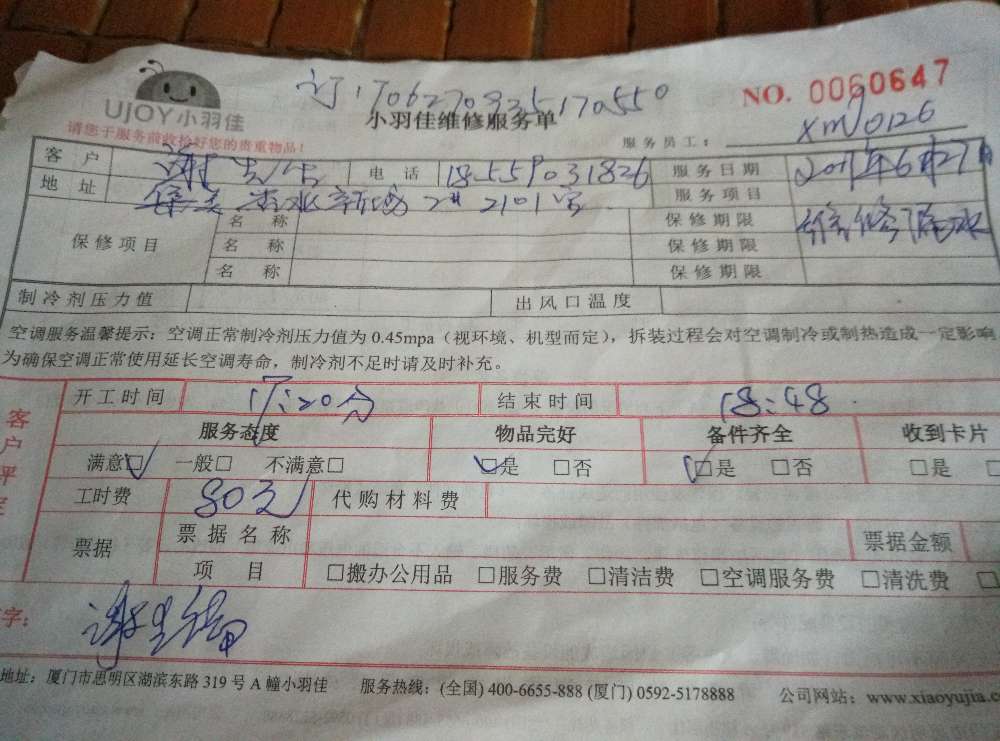 UJOY小羽佳
订:170627093517055０
NO. 0060647
小羽佳维修服务单
请您于服务前收拾好您的贵重物品!
服务员工: xm0126
客户 电话 18559031826 服务日期 2017年6月27日
地址 2101号 服务项目 维修漏水
保修项目 名称 保修期限
名称 保修期限
名称 保修期限
制冷剂压力值 出风口温度
空调服务温馨提示: 空调正常制冷剂压力值为 0.45mpa (视环境、机型而定), 拆装过程会对空调制冷或制热造成一定影响
为确保空调正常使用延长空调寿命, 制冷剂不足时请及时补充。
客户评
开工时间 17:20分 结束时间 18:48
服务态度 物品完好 备件齐全 收到卡片
满意☑ 一般□ 不满意□ ☑是 □否 ☑是 □否 □是 □
工时费 80元 代购材料费
票据 票据名称 票据金额
项目 □搬办公用品 □服务费 □清洁费 □空调服务费 □清洗费 □
字:
地址: 厦门市思明区湖滨东路 319 号 A 幢小羽佳 服务热线: (全国) 400-6655-888 (厦门) 0592-5178888 公司网站: www.xiaoyujia.c